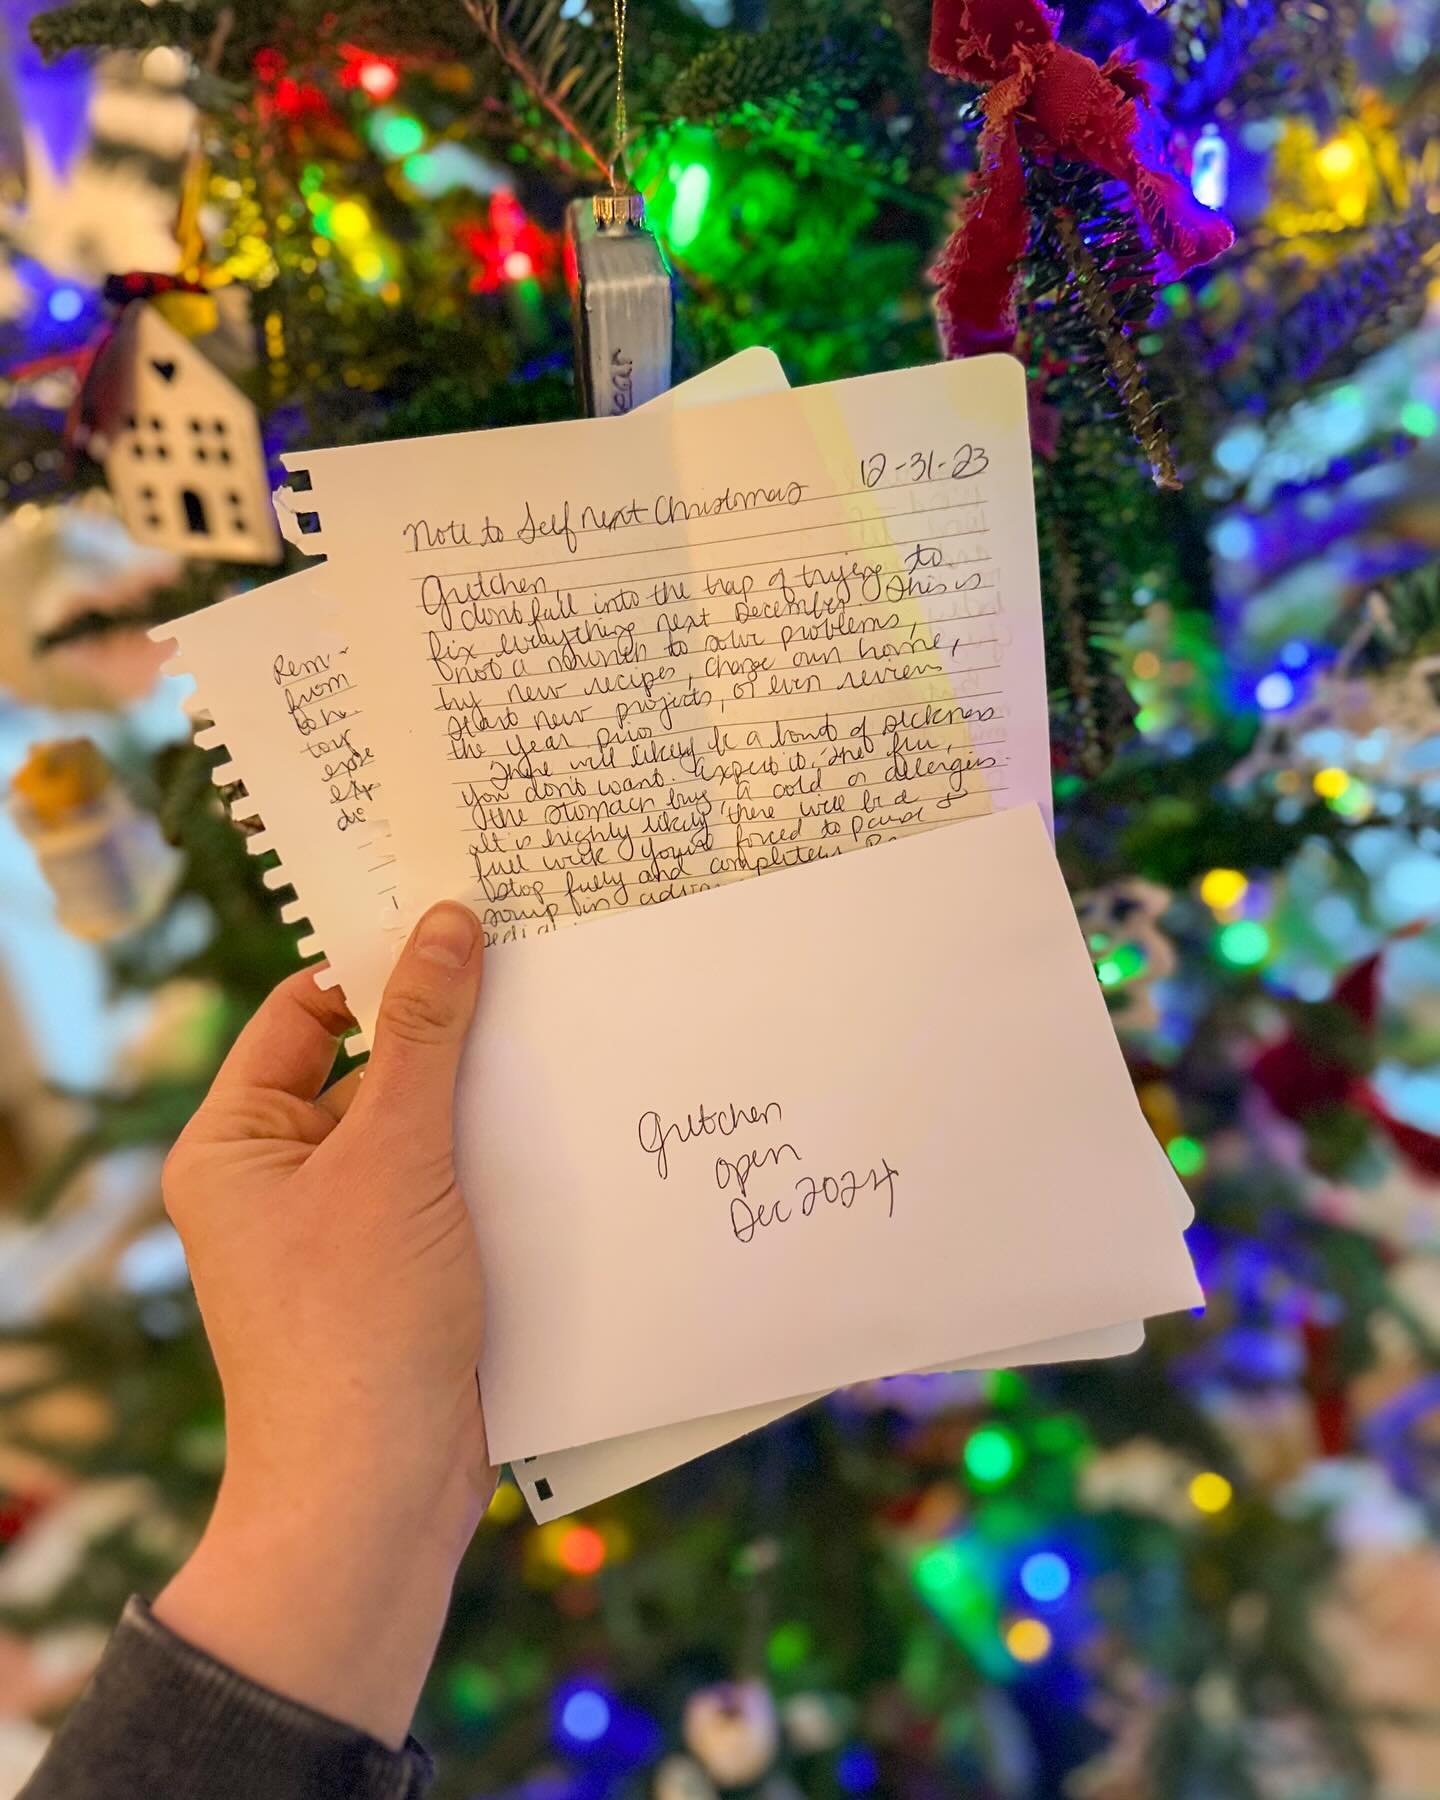 ear
12-31-23
Note to Self next Christmas
Gretchen,
don't fall into the trap of trying to
fix everything next December. This is
not a newness to our problems,
try new recipes, change our home,
start new projects, or even review
the year prior
There will likely be a bout of sickness
you don't want. Expect it, the flu,
the stomach bug, a cold or allergies.
It is highly likely there will be a
full week you're forced to pause
stop fully and completely.
soup
Rem-
from
to
Gretchen
open
Dec 2024